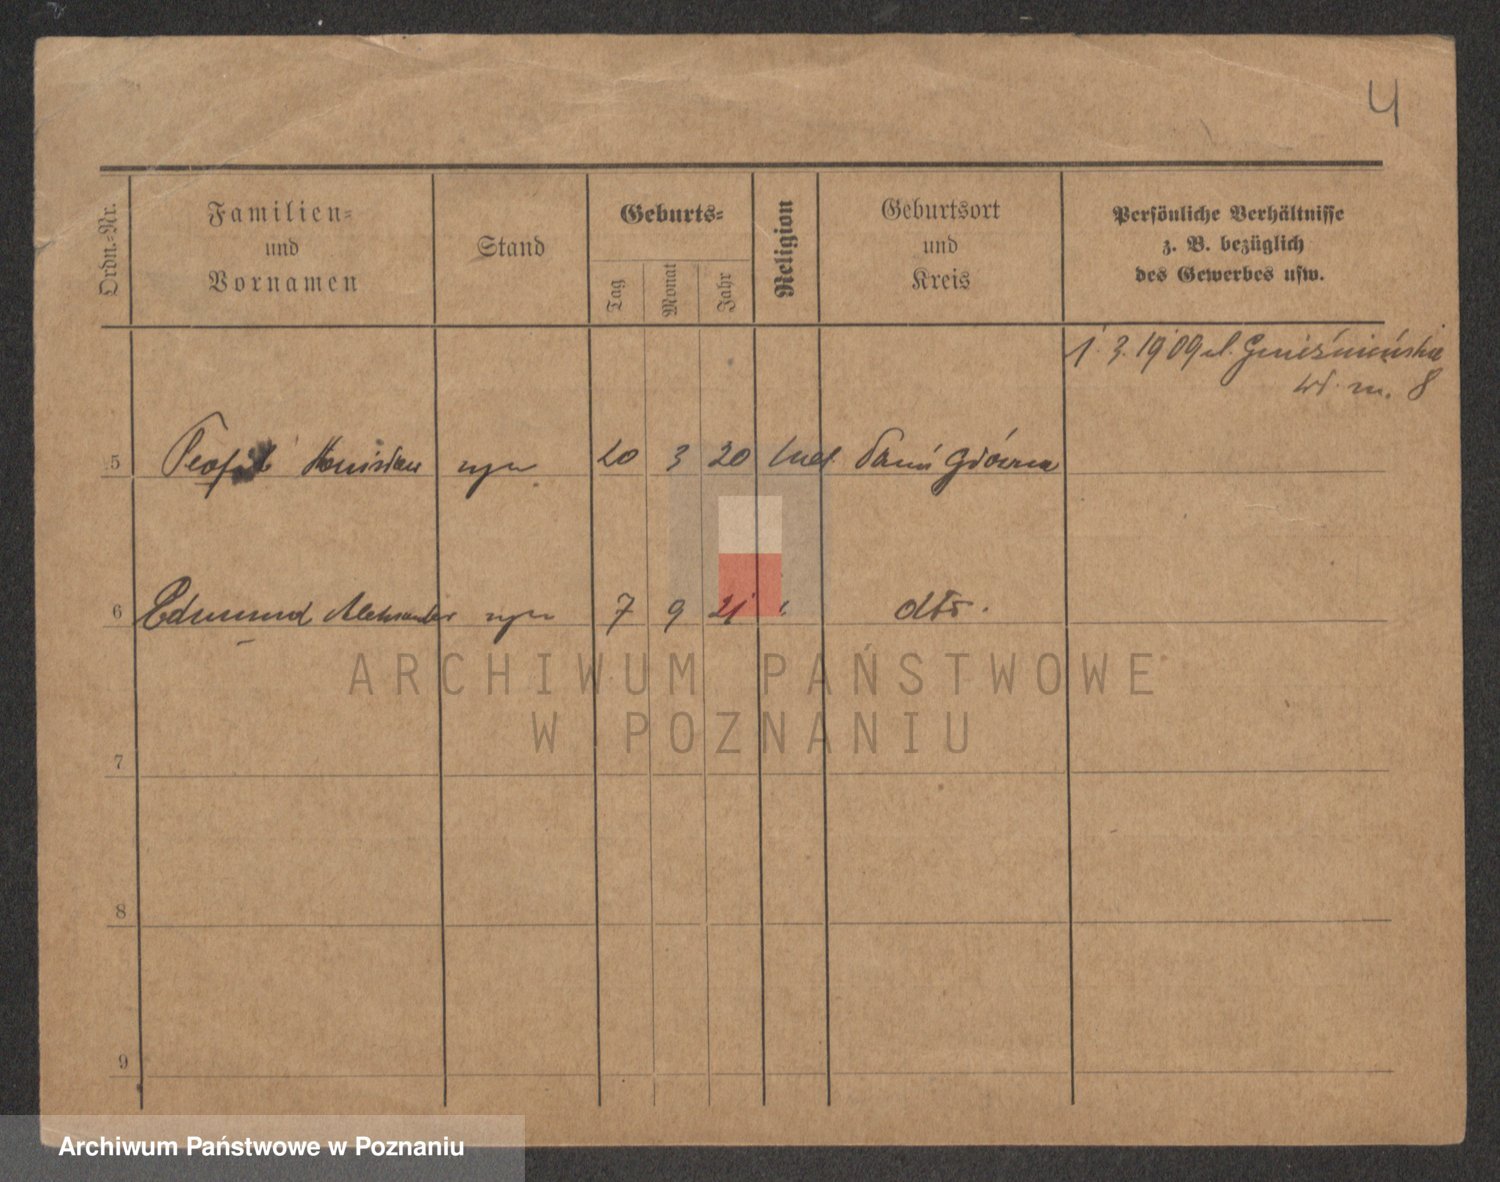 4
Ordn.-Nr.
Familien-
und
Vornamen
Stand
Geburts-
Tag
Monat
Jahr
Religion
Geburtsort
und
Kreis
Persönliche Verhältnisse
z. B. bezüglich
des Gewerbes usw.
1. 3. 1909 ul. Gnieźnieńska
m. 8
5 Teofil syn 20 3 20 Główna
6 Edmund Aleksander syn 7 9 21 dto.
7
8
9
ARCHIWUM PAŃSTWOWE
W POZNANIU
Archiwum Państwowe w Poznaniu